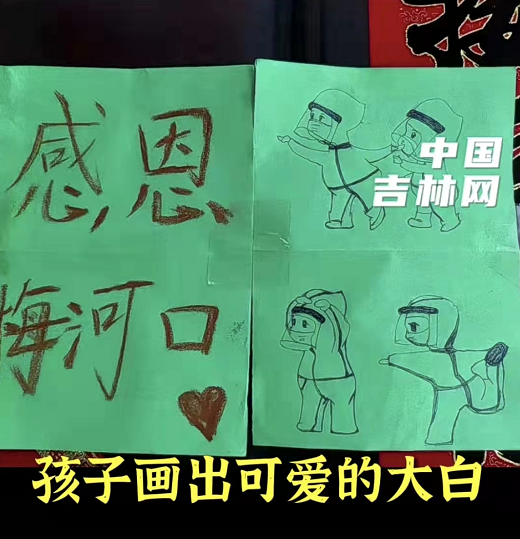 感恩
梅河口
中国
吉林网
孩子画出可爱的大白